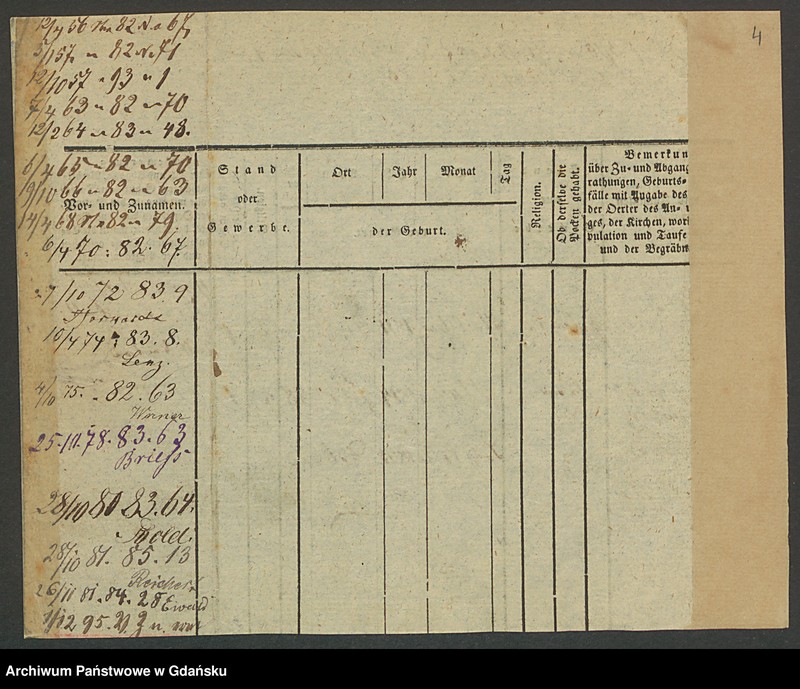 4
12/4 56 No 82 No 67.
5/1 57. n 82 No 71
12/10 57 n 93 n 1
7/4 63 n 82 n 70
12/2 64 n 83 n 48.
6/4 65 n 82 n 70
19/10 66 n 82 n 63
14/4 68 No 82 n 79.
6/4 70 : 82. 67.
Vor- und Zunamen.
Stand
oder
Gewerbe.
Ort
Jahr
Monat
Tag
der Geburt.
Religion.
Ob derselbe die
Pocken gehabt.
Bemerkun
über Zu- und Abgang
rathungen, Geburts-
fälle mit Angabe des
der Oerter des An-
ges, der Kirchen, wori
pulation und Taufe
und der Begräbn
27/10 72 83. 9
10/4 74 : 83. 8.
Lenz.
4/10 75. - 82. 63
Werner
25. 11. 78. 83. 63
Brieß
28/10 80 83. 64.
28/10 81. 85. 13
Reichert
26/11 81. 84. 28
Ewald
Archiwum Państwowe w Gdańsku